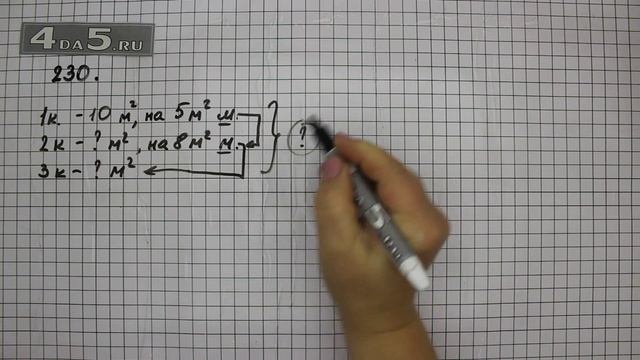 4DA5.RU
230.
1к - 10 м², на 5 м² м.
2к - ? м², на 8 м² м.
3к - ? м²
?